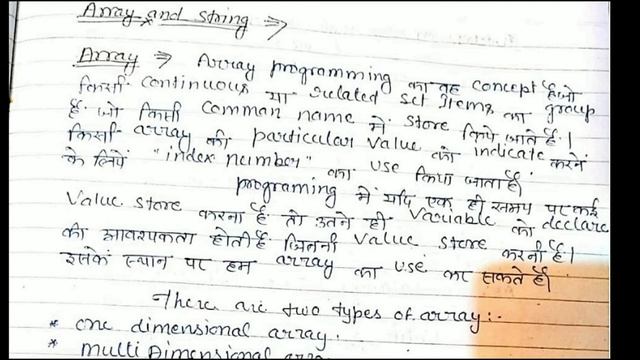 Array and string ⇒
Array ⇒ Array programming का वह concept है जो
किसी continuous या related set items का group
है जो किसी comman name में store किये जाते है।
किसी array की particular value को indicate करने
के लिये "index number" का use किया जाता है।
programing में यदि एक ही समय पर कई
Value store करना है तो उतने ही variable को declare
की आवश्यकता होती है जितनी value store करनी है।
इसके स्थान पर हम array का use कर सकते है।
There are two types of array:-
* one dimensional array.
* multi Dimensional